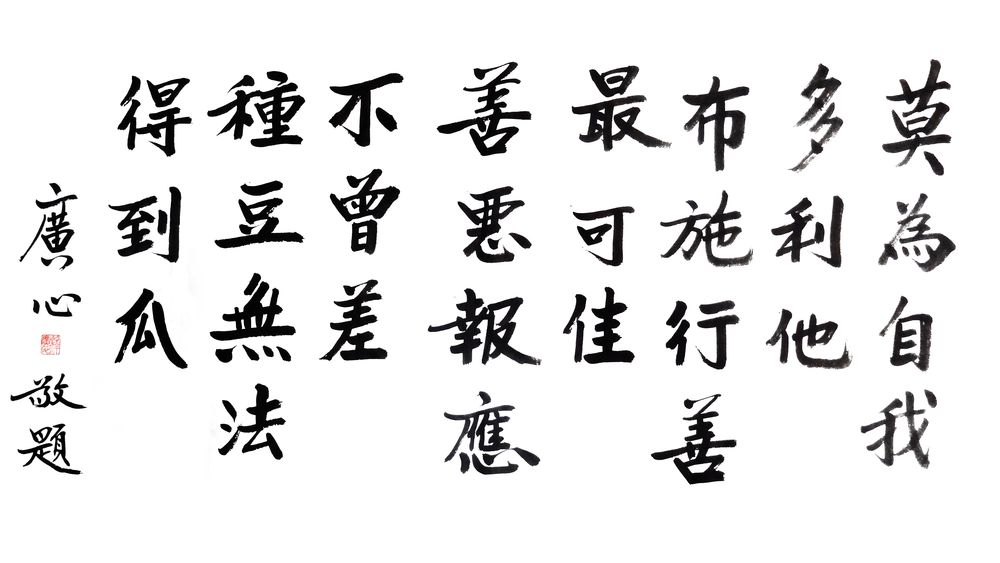 莫為自我
多利他
布施行善
最可佳
善惡報應
不曾差
種豆無法
得到瓜
廣心
敬題